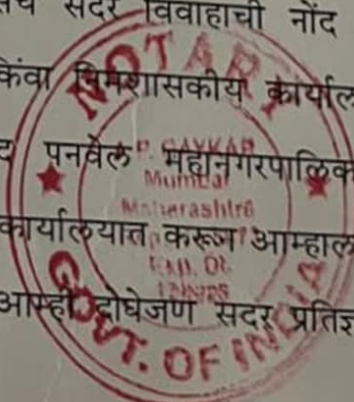 तच सदर विवाहाची नोंद
किंवा निमशासकीय कार्याल
द पनवेल महानगरपालिक
कार्यालयात करून आम्हाल
आम्ही दोघेजण सदर प्रतिज्ञ
NOTARY
GAYKAR
Mumbai
Maharashtra
GOVT. OF INDIA